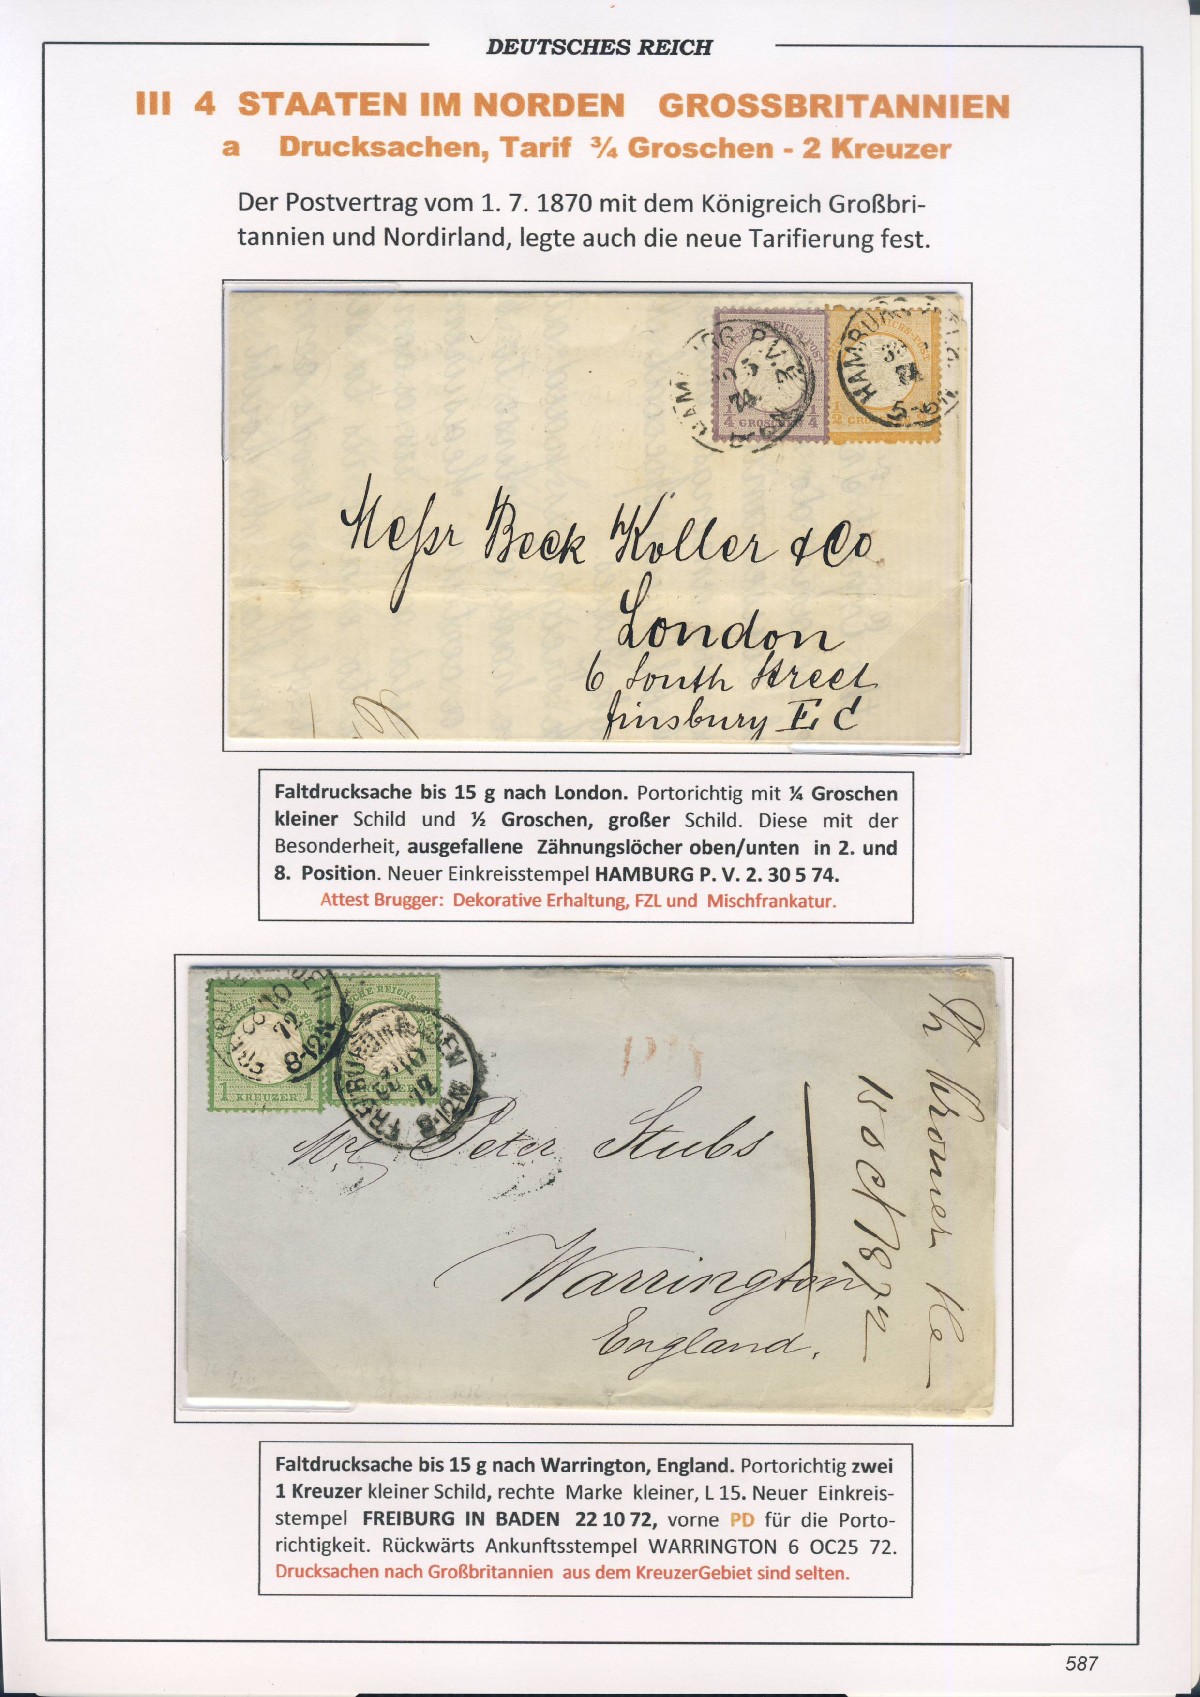 DEUTSCHES REICH
III 4 STAATEN IM NORDEN GROSSBRITANNIEN
a Drucksachen, Tarif ¾ Groschen - 2 Kreuzer
Der Postvertrag vom 1. 7. 1870 mit dem Königreich Großbri-
tannien und Nordirland, legte auch die neue Tarifierung fest.
DEUTSCHE REICHS-POST
1/4 GROSCHEN 1/4
HAMBURG P.V.2
74
HAMBURG
74
5-6N
1/2
Messr Beck Koller & Co
London
6 South Street
Finsbury E C
Faltdrucksache bis 15 g nach London. Portorichtig mit ¼ Groschen
kleiner Schild und ½ Groschen, großer Schild. Diese mit der
Besonderheit, ausgefallene Zähnungslöcher oben/unten in 2. und
8. Position. Neuer Einkreisstempel HAMBURG P. V. 2. 30 5 74.
Attest Brugger: Dekorative Erhaltung, FZL und Mischfrankatur.
72
8-12N
1 KREUZER 1
FREIBURG IN BADEN
22 10
72
8-12N
KREUZER
PD
Peter Stubs
Warrington
England.
15 Oct 1872
Faltdrucksache bis 15 g nach Warrington, England. Portorichtig zwei
1 Kreuzer kleiner Schild, rechte Marke kleiner, L 15. Neuer Einkreis-
stempel FREIBURG IN BADEN 22 10 72, vorne PD für die Porto-
richtigkeit. Rückwärts Ankunftsstempel WARRINGTON 6 OC25 72.
Drucksachen nach Großbritannien aus dem KreuzerGebiet sind selten.
587